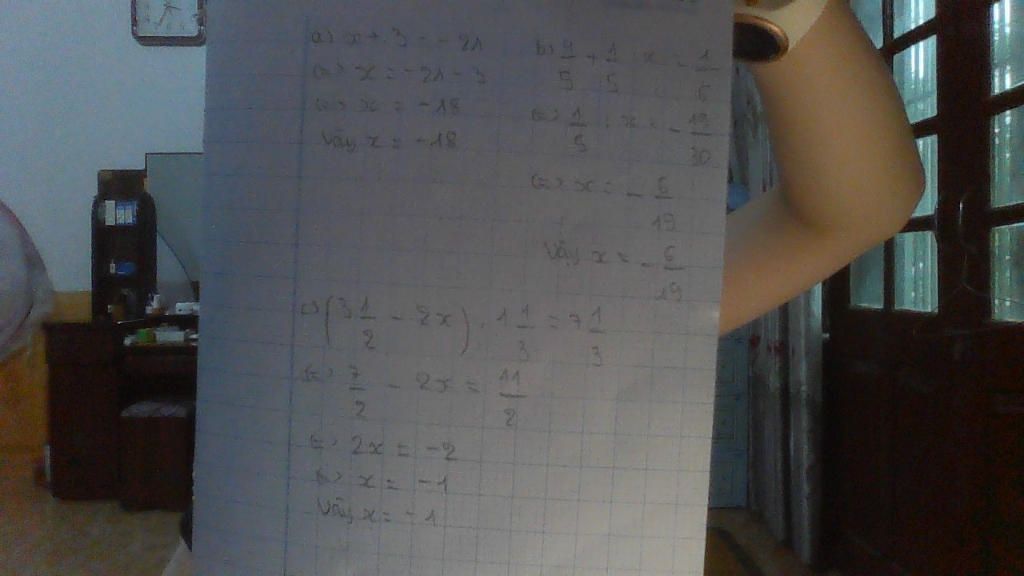 a) x + 3 = -21
<=> x = -21 - 3
<=> x = -18
Vậy x = -18
b) 4/5 + 1/5 : x = 1/6
<=> 1/5 : x = -19/30
<=> x = -6/19
Vậy x = -6/19
c) (3 1/2 - 2x) . 1 1/3 = 7 1/3
<=> 7/2 - 2x = 11/2
<=> 2x = -2
<=> x = -1
Vậy x = -1